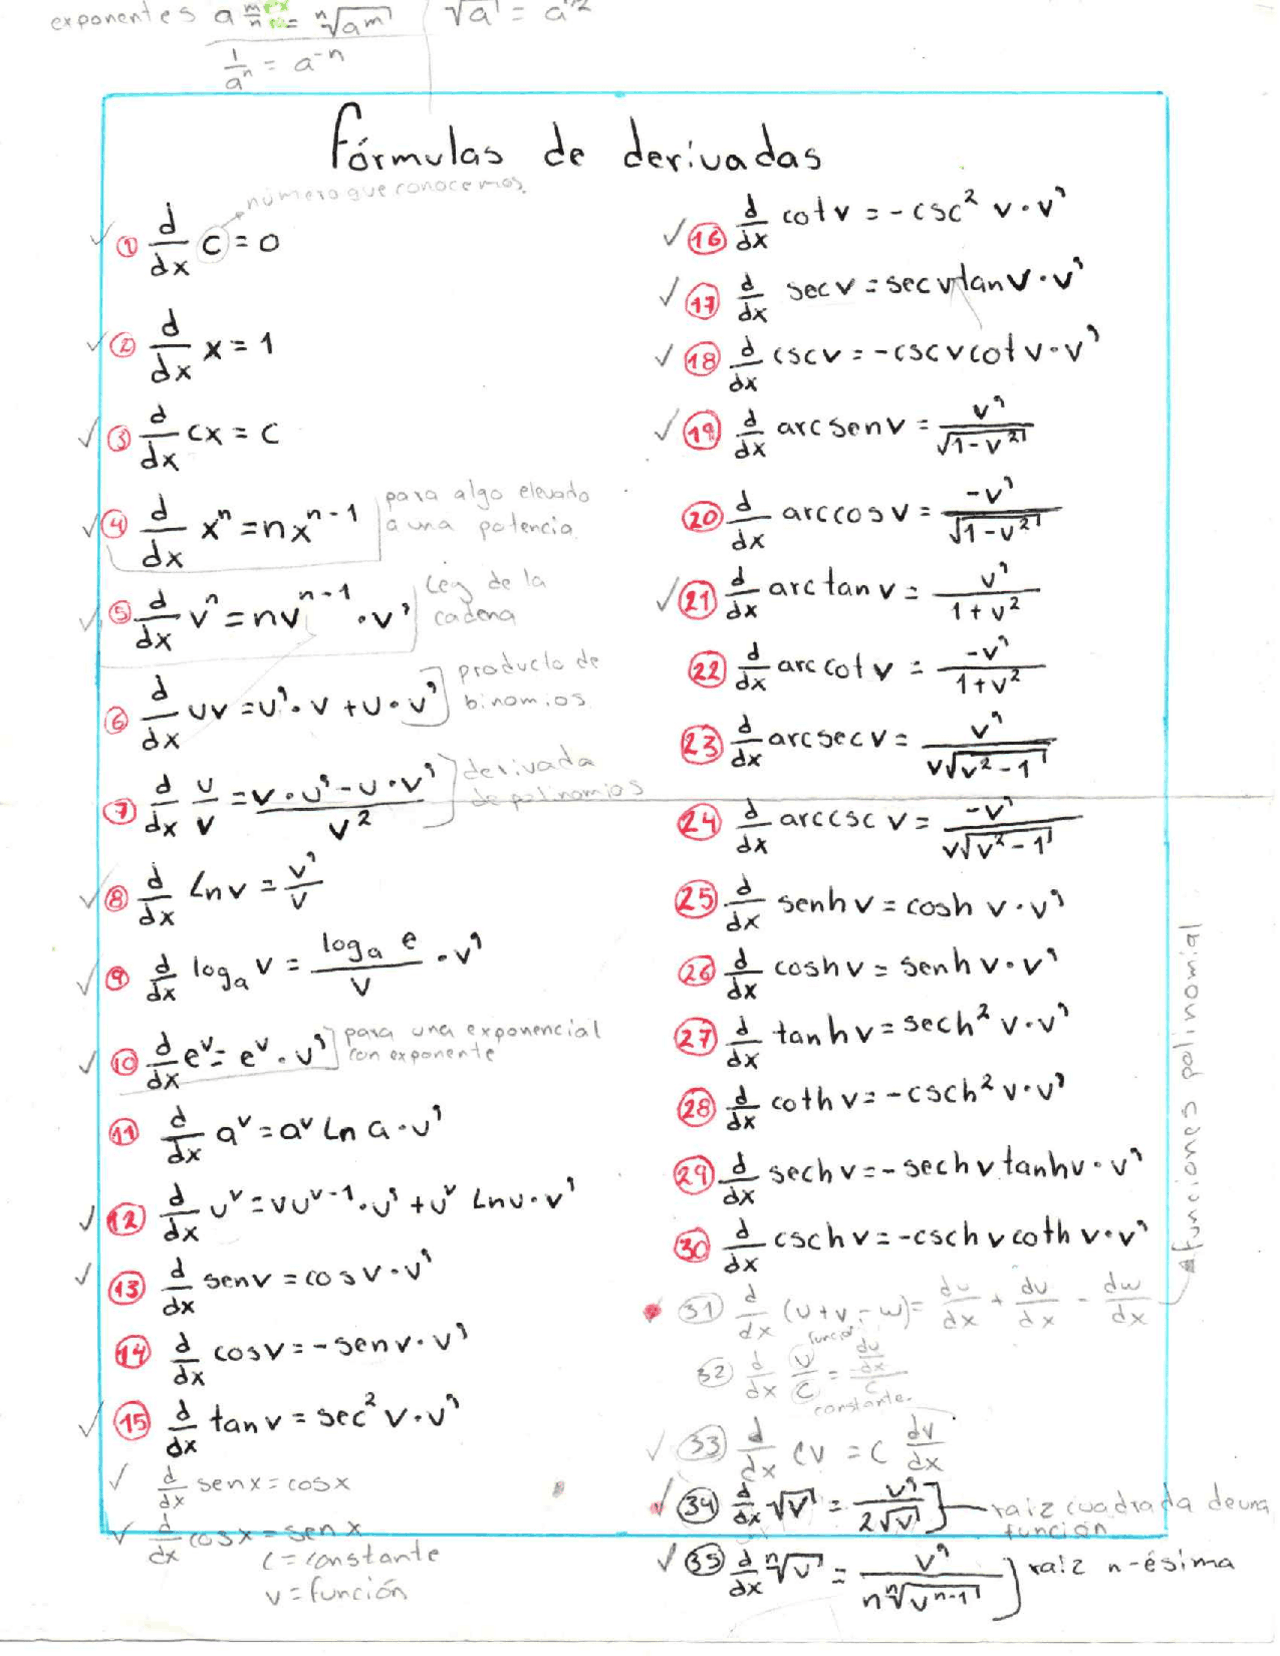 exponentes a^(m/n) = ⁿ√a^m √a = a^1/2
1/a^n = a^-n
Fórmulas de derivadas
número que conocemos
① d/dx c = 0
② d/dx x = 1
③ d/dx cx = c
④ d/dx x^n = nx^(n-1) para algo elevado
a una potencia
⑤ d/dx v^n = nv^(n-1) · v' Ley de la
cadena
⑥ d/dx uv = u' · v + u · v' producto de
binomios
⑦ d/dx u/v = (v · u' - u · v')/v^2 derivada
de polinomios
⑧ d/dx Ln v = v'/v
⑨ d/dx log_a v = (log_a e)/v · v'
⑩ d/dx e^v = e^v · v' para una exponencial
con exponente
⑪ d/dx a^v = a^v Ln a · v'
⑫ d/dx u^v = vu^(v-1) · u' + u^v Ln u · v'
⑬ d/dx sen v = cos v · v'
⑭ d/dx cos v = -sen v · v'
⑮ d/dx tan v = sec^2 v · v'
d/dx sen x = cos x
d/dx cos x = sen x
c = constante
v = función
⑯ d/dx cot v = -csc^2 v · v'
⑰ d/dx sec v = sec v tan v · v'
⑱ d/dx csc v = -csc v cot v · v'
⑲ d/dx arc sen v = v'/√(1-v^2)
⑳ d/dx arc cos v = -v'/√(1-v^2)
㉑ d/dx arc tan v = v'/(1+v^2)
㉒ d/dx arc cot v = -v'/(1+v^2)
㉓ d/dx arc sec v = v'/(v√(v^2-1))
㉔ d/dx arc csc v = -v'/(v√(v^2-1))
㉕ d/dx senh v = cosh v · v'
㉖ d/dx cosh v = senh v · v'
㉗ d/dx tanh v = sech^2 v · v'
㉘ d/dx coth v = -csch^2 v · v'
㉙ d/dx sech v = -sech v tanh v · v'
㉚ d/dx csch v = -csch v coth v · v'
㉛ d/dx (u+v-w) = du/dx + dv/dx - dw/dx
funciones polinomial
㉜ d/dx u/c = (du/dx)/c
constante
㉝ d/dx cv = c dv/dx
㉞ d/dx √v = v'/(2√v) raiz cuadrada de una
función
㉟ d/dx ⁿ√v = v'/(n ⁿ√v^(n-1)) raiz n-ésima